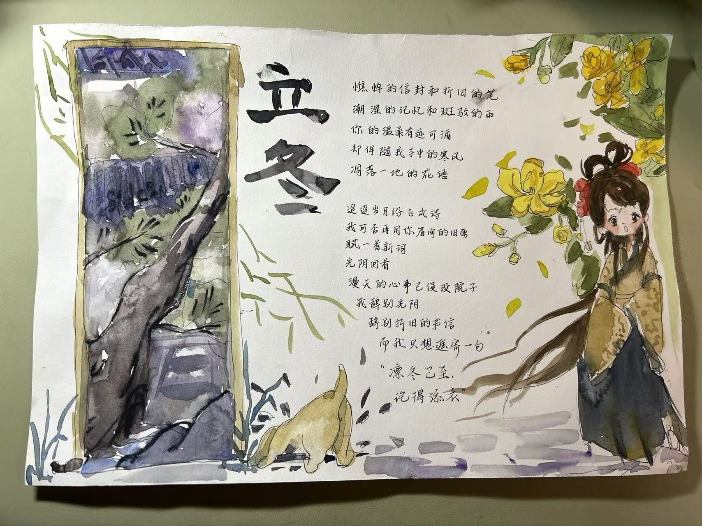 立冬
憔悴的信封和折旧的笔
潮湿的记忆和斑驳的雨
你的温柔有迹可循
却伴随我手中的寒风
凋落一地的花语
迢迢岁月浮白式诗
我可否再同你眉间的旧雪
赋一首新词
光阴回首
漫天的心事已侵没院子
我辞别光阴
辞别折旧的书信
而我只想遥寄一句
"凛冬已至,
记得添衣"